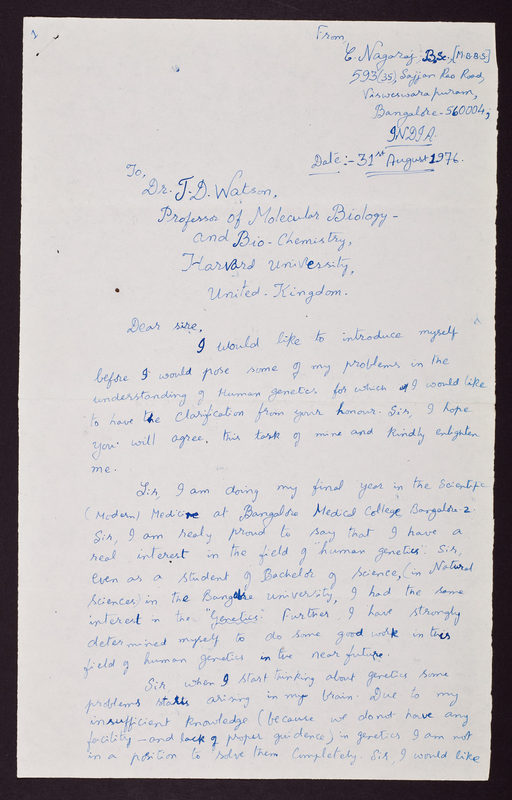 From
C. Nagaraj B.Sc. [M.B.B.S]
593(35), Sajjan Rao Road,
Visweswarapuram,
Bangalore-560004,
INDIA.
Date:- 31st August 1976.
To,
Dr. J.D. Watson,
Professor of Molecular Biology -
and Bio-Chemistry,
Harvard University,
United-Kingdom.
Dear sire,
I would like to introduce myself
before I would pose some of my problems in the
understanding of Human genetics for which I would like
to have the clarification from your honour. Sir, I hope
you will agree, this task of mine and kindly enlighten
me.
Sir, I am doing my final year in the Scientific
(Modern) Medicine at Bangalore Medical College Bangalore-2.
Sir, I am realy proud to say that I have a
real interest in the field of "human genetics". Sir,
even as a student of Bachelor of science, (in Natural
Sciences) in the Bangalore university, I had the same
interest in the "Genetics". Further, I have strongly
determined myself to do some good work in this
field of human genetics in the near future.
Sir, when I start thinking about genetics some
problems starts arising in my brain. Due to my
insufficient knowledge (because we do not have any
facility - and lack of proper guidence) in genetics I am not
in a position to solve them completely. Sir, I would like